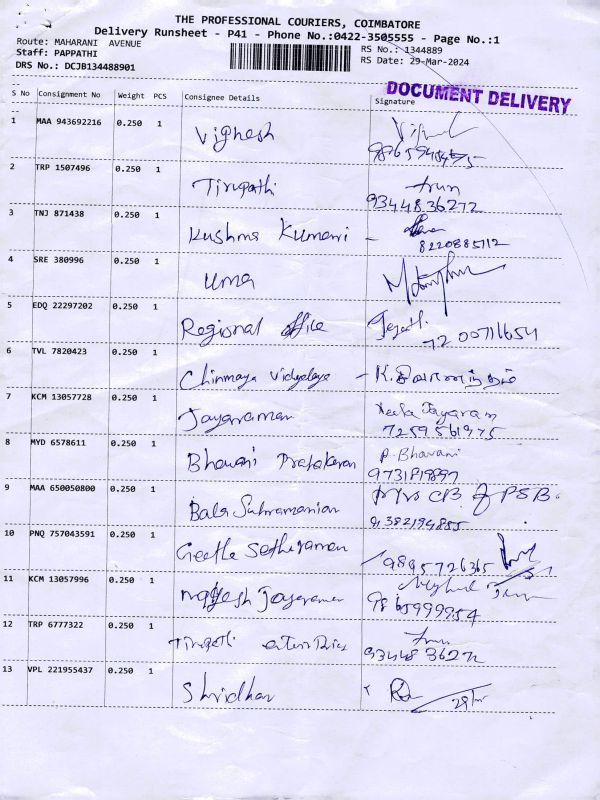 THE PROFESSIONAL COURIERS, COIMBATORE
Delivery Runsheet - P41 - Phone No.:0422-3505555 - Page No.:1
Route: MAHARANI AVENUE
RS No.: 1344889
Staff: PAPPATHI
RS Date: 29-Mar-2024
DRS No.: DCJB134488901
DOCUMENT DELIVERY
S No Consignment No Weight PCS Consignee Details Signature
1 MAA 943692216 0.250 1 Vighesh
2 TRP 1507496 0.250 1 Tirupathi
9344836272
3 TNJ 871438 0.250 1 Kushma Kumari -
8220885112
4 SRE 380996 0.250 1 Uma
5 EDQ 22297202 0.250 1 Regional office
7200711654
6 TVL 7820423 0.250 1 Chinmaya Vidyalaya
7 KCM 13057728 0.250 1 Jayaraman Jayaram
7259561975
8 MYD 6578611 0.250 1 Bhavani P. Bhavani
9731819897
9 MAA 650050800 0.250 1 Bala Subramanian
9382194855
10 PNQ 757043591 0.250 1 Geetha Sethuraman
9895726365
11 KCM 13057996 0.250 1 Jayaraman
9865999954
12 TRP 6777322 0.250 1 Tirupathi
9344836272
13 VPL 221955437 0.250 1 Shridhar